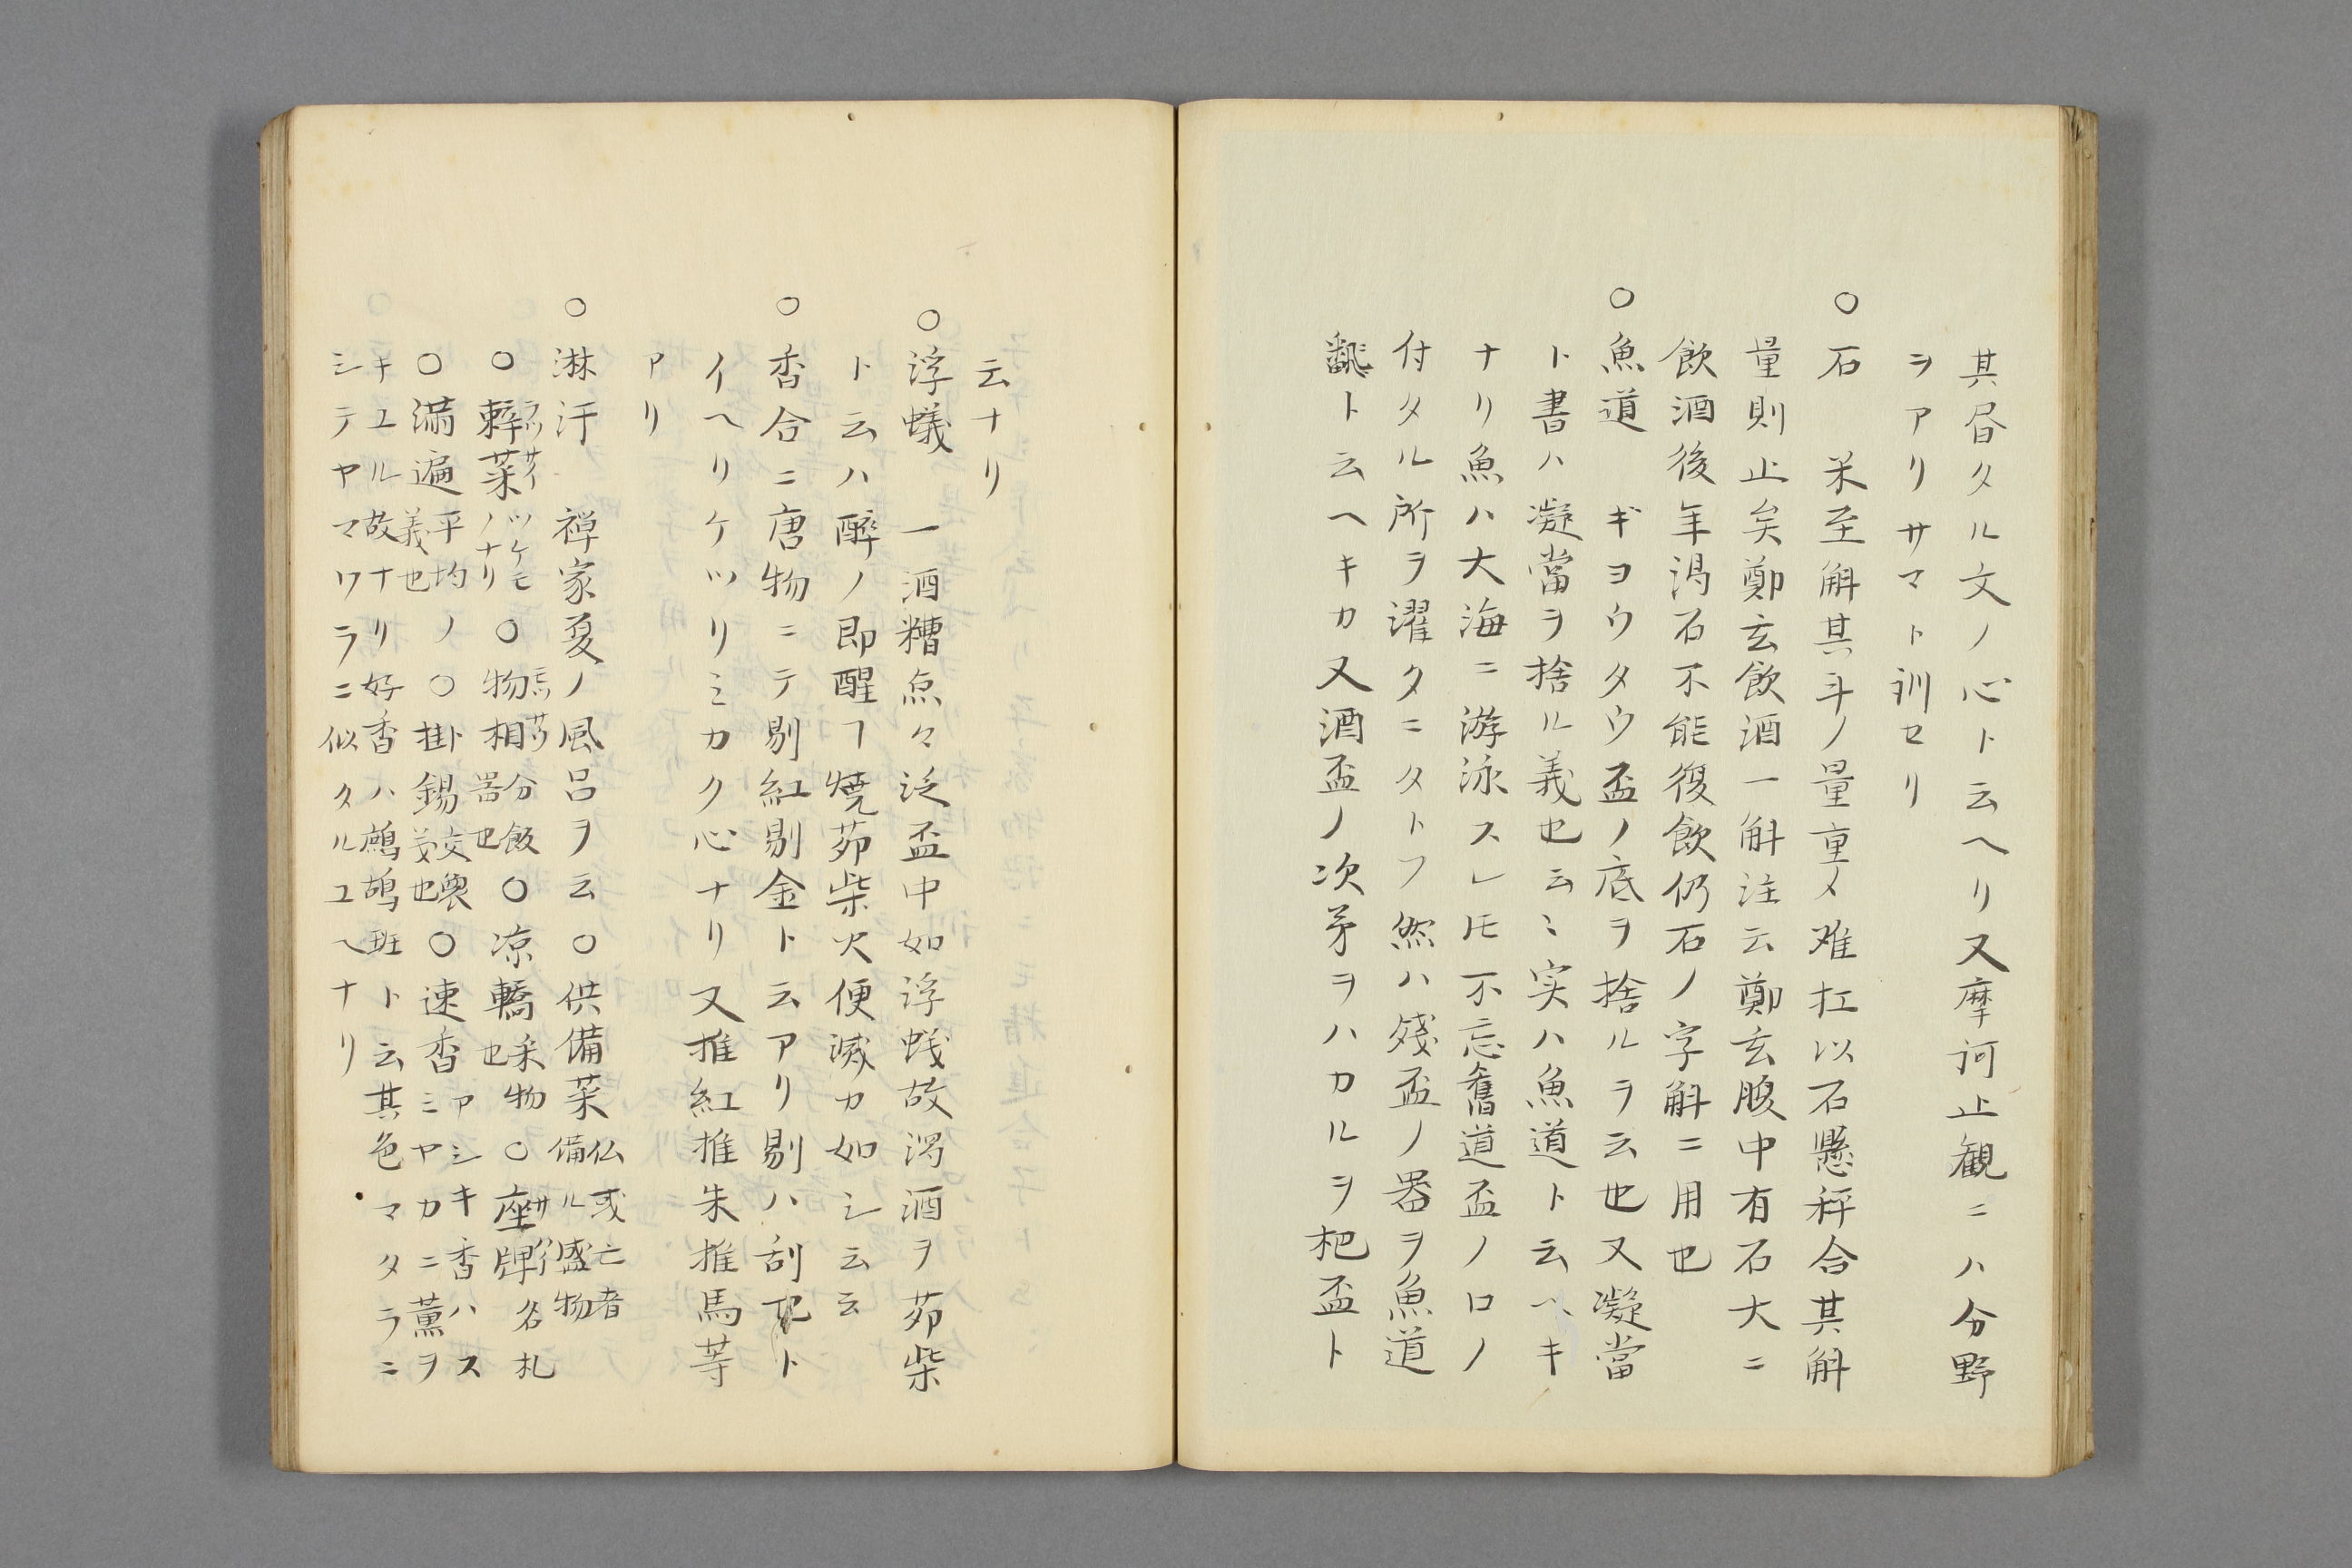 其昏タル文ノ心ト云ヘリ又摩訶止観ニハ分野
ヲアリサマト訓セリ
○石　米至斛其斗ノ量重メ难扛以石懸秤合其斛
量則止矣鄭玄飲酒一斛注云鄭玄腹中有石大ニ
飲酒後年渇石不能復飲仍石ノ字斛ニ用也
○魚道　ギヨウタウ盃ノ底ヲ捨ルヲ云也又凝當
ト書ハ凝當ヲ捨ル義也云〻実ハ魚道ト云ヘキ
ナリ魚ハ大海ニ游泳スレ𪜈不忘舊道盃ノロノ
付タル所ヲ濯タニタトフ然ハ残盃ノ器ヲ魚道
ト云ヘキカ又酒盃ノ次第ヲハカルヲ杷盃ト
云ナリ
○浮蟻　一酒糟点々泛盃中如浮蟻故濁酒ヲ茆柴
ト云ハ醉ノ即醒ヿ焼茆柴火便滅カ如シ云云
○香合ニ唐物ニテ剔紅剔金ト云アリ剔ハ刮ト
イヘリケツリミカク心ナリ又推紅推朱推馬等
アリ
○淋汗　禅家夏ノ風呂ヲ云○供備菜仏或亡者備ル盛物
○辢菜ラツサイツケモノナリ○物相モツサウ分飯器也○凉轎釆物也○座牌ザハイ名札
○満遍平均ノ義也○掛錫交衆義也○速香アシキ香ハスミヤカニ薫ヲ
キユル故ナリ好香ハ鷓鴣班ト云其色マタラニ
シテヤマワラニ似タルユヘナリ